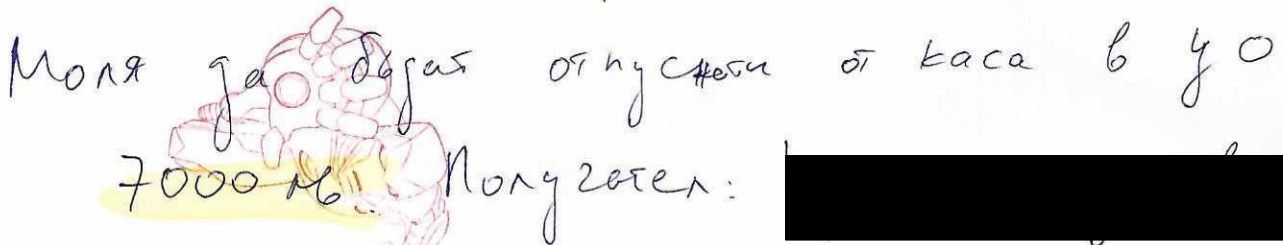 Моля да бъдат отпуснати от каса в УО
7000 лв. Получател: